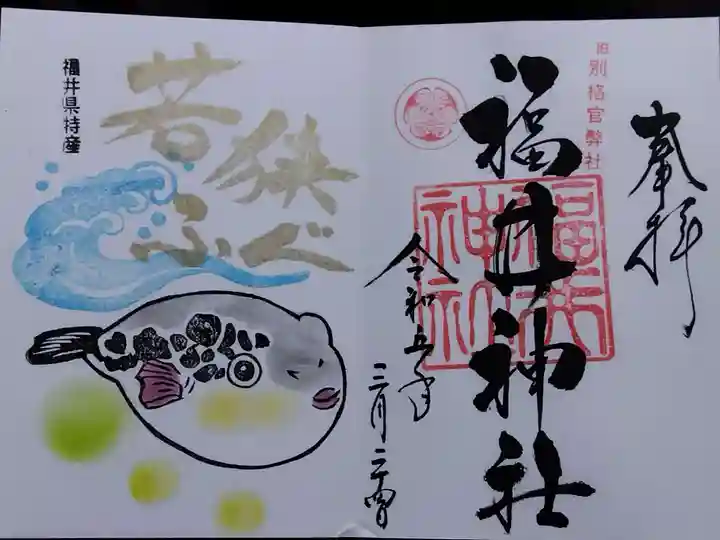 奉拝
旧別格官幣社
福井神社
福井神社
令和五年
三月二十四日
若狭
ふぐ
福井県特産